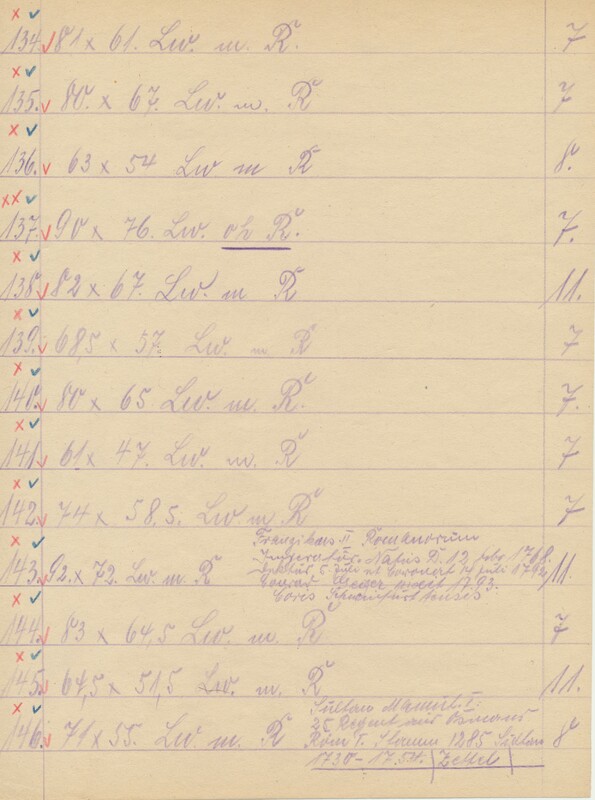 134. 81 x 61. Lw. m. R. 7
135. 80. x 67. Lw. m. R 7
136. 63 x 54 Lw m R 8.
137. 90 x 76. Lw. oh R. 7.
138. 82 x 67. Lw. m R 11.
139. 68,5 x 57. Lw. m R 7
140. 80 x 65. Lw. m. R. 7.
141. 61 x 47. Lw. m. R 7
142. 74 x 58.5. Lw. m R 7
Franziskus II Romanorum
Imperator. Natus D. 12 febr 1768.
143. 92. x 72. Lw. m. R 5 Juli et Coronert 14 Juli 1792 11.
pinxit 1793.
Schweinfurtensis
144. 83 x 64,5 Lw. m. R 7
145. 64,5 x 51,5 Lw. m. R 11.
Sultan Mamut. I.
25 Regent aus
146. 71 x 55. Lw. m. R Stamm 1285 Sultan 8
1730 - 17.54. (Zettel)